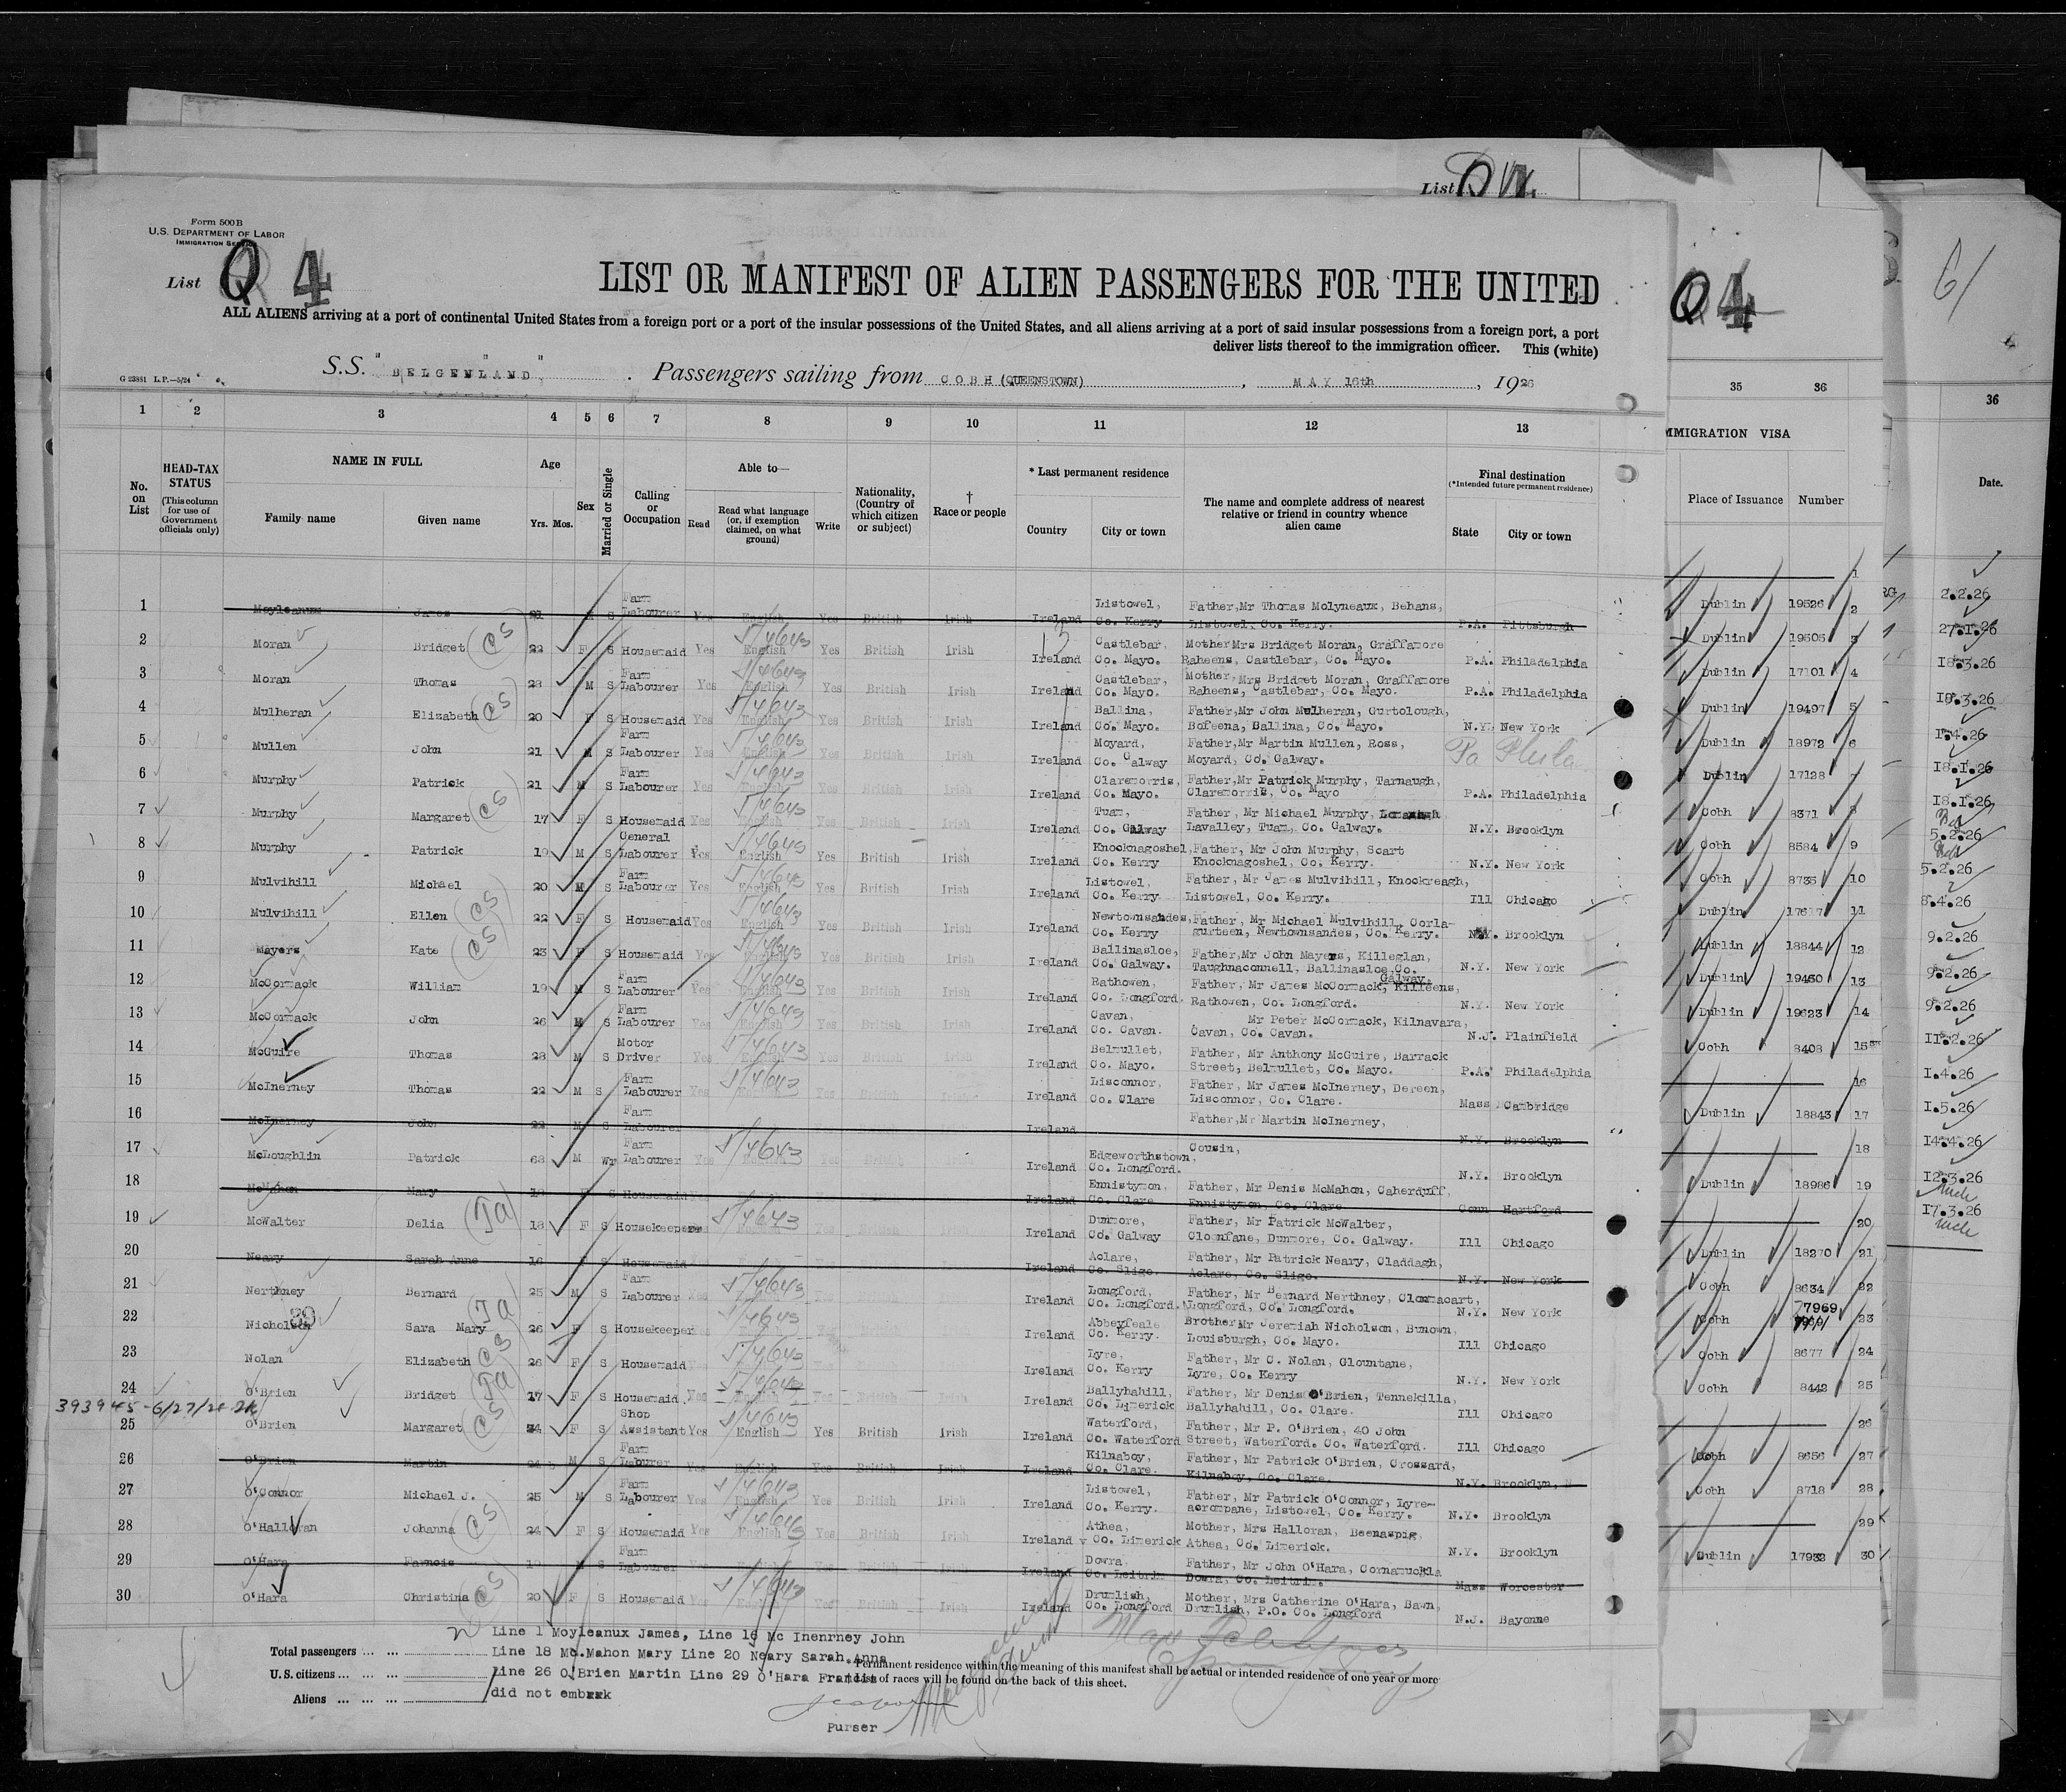 List
Form 500B
U.S. DEPARTMENT OF LABOR
IMMIGRATION SERVICE
List Q 4
Q 4
61
LIST OR MANIFEST OF ALIEN PASSENGERS FOR THE UNITED
ALL ALIENS arriving at a port of continental United States from a foreign port or a port of the insular possessions of the United States, and all aliens arriving at a port of said insular possessions from a foreign port, a port
deliver lists thereof to the immigration officer. This (white)
G 23881 L.P.—5/24
S.S. "BELGENLAND" . Passengers sailing from COBH (QUEENSTOWN) , MAY 16th , 1926
1 2 3 4 5 6 7 8 9 10 11 12 13
No. on List
HEAD-TAX STATUS
(This column for use of Government officials only)
NAME IN FULL
Family name Given name
Age
Yrs. Mos.
Sex
Married or Single
Calling or Occupation
Able to—
Read
Read what language (or, if exemption claimed, on what ground)
Write
Nationality, (Country of which citizen or subject)
† Race or people
* Last permanent residence
Country City or town
The name and complete address of nearest relative or friend in country whence alien came
Final destination
(*Intended future permanent residence)
State City or town
1 Moyleanux James 21 M S Farm Labourer Yes English Yes British Irish Ireland Listowel, Co. Kerry Father,Mr Thomas Molyneaux, Behans, Listowel, Co. Kerry. P.A. Pittsburgh
2 Moran Bridget 22 F S Housemaid Yes English Yes British Irish Ireland Castlebar, Co. Mayo. Mother Mrs Bridget Moran, Graffamore Raheens, Castlebar, Co. Mayo. P.A. Philadelphia
3 Moran Thomas 28 M S Farm Labourer Yes English Yes British Irish Ireland Castlebar, Co. Mayo. Mother, Mrs Bridget Moran, Graffamore Raheens, Castlebar, Co. Mayo. P.A. Philadelphia
4 Mulheran Elizabeth 20 F S Housemaid Yes English Yes British Irish Ireland Ballina, Co. Mayo. Father,Mr John Mulheran, Curtolough, Bofeena, Ballina, Co. Mayo. N.Y. New York
5 Mullen John 21 M S Farm Labourer Yes English Yes British Irish Ireland Moyard, Co. Galway Father,Mr Martin Mullen, Ross, Moyard, Co. Galway. Pa Phila
6 Murphy Patrick 21 M S Farm Labourer Yes English Yes British Irish Ireland Claremorris, Co. Mayo. Father,Mr Patrick Murphy, Tarnaugh, Claremorris, Co. Mayo P.A. Philadelphia
7 Murphy Margaret 17 F S Housemaid Yes English Yes British Irish Ireland Tuam, Co. Galway Father, Mr Michael Murphy, Lavalley, Tuam, Co. Galway. N.Y. Brooklyn
8 Murphy Patrick 19 M S General Labourer Yes English Yes British Irish Ireland Knocknagoshel, Co. Kerry Father, Mr John Murphy, Scart Knocknagoshel, Co. Kerry. N.Y. New York
9 Mulvihill Michael 20 M S Farm Labourer Yes English Yes British Irish Ireland Listowel, Co. Kerry Father, Mr James Mulvihill, Knockreagh, Listowel, Co. Kerry. Ill Chicago
10 Mulvihill Ellen 22 F S Housemaid Yes English Yes British Irish Ireland Newtownsandes, Co. Kerry Father, Mr Michael Mulvihill, Corla-gurteen, Newtownsandes, Co. Kerry. N.Y. Brooklyn
11 Mayers Kate 23 F S Housemaid Yes English Yes British Irish Ireland Ballinasloe, Co. Galway. Father,Mr John Mayers, Killeglan, Taughnaconnell, Ballinasloe,Co. Galway. N.Y. New York
12 McCormack William 19 M S Farm Labourer Yes English Yes British Irish Ireland Rathowen, Co. Longford. Father, Mr James McCormack, Killeens, Rathowen, Co. Longford. N.Y. New York
13 McCormack John 26 M S Farm Labourer Yes English Yes British Irish Ireland Cavan, Co. Cavan. Mr Peter McCormack, Kilnavara, Cavan, Co. Cavan. N.J. Plainfield
14 McGuire Thomas 28 M S Motor Driver Yes English Yes British Irish Ireland Belmullet, Co. Mayo. Father, Mr Anthony McGuire, Barrack Street, Belmullet, Co. Mayo. P.A. Philadelphia
15 McInerney Thomas 22 M S Farm Labourer Yes English Yes British Irish Ireland Lisconnor, Co. Clare Father, Mr James McInerney, Dereen, Lisconnor, Co. Clare. Mass Cambridge
16 McInerney John 22 M S Farm Labourer Ireland Father,Mr Martin McInerney, N.Y. Brooklyn
17 McLoughlin Patrick 63 M Wr Farm Labourer Yes Yes British Ireland Edgeworthstown, Co. Longford. Cousin, N.Y. Brooklyn
18 McMahon Mary 18 F S Housemaid Ireland Ennistymon, Co. Clare Father, Mr Denis McMahon, Caherduff, Ennistymon, Co. Clare Conn Hartford
19 McWalter Delia 18 F S Housekeeper Yes English Yes British Irish Ireland Dunmore, Co. Galway Father, Mr Patrick McWalter, Cloonfane, Dunmore, Co. Galway. Ill Chicago
20 Neary Sarah Anne 16 F S Housemaid Ireland Aclare, Co. Sligo. Father, Mr Patrick Neary, Claddagh, Aclare, Co. Sligo. N.Y. New York
21 Nerthney Bernard 25 M S Farm Labourer Yes English Yes British Irish Ireland Longford, Co. Longford. Father, Mr Bernard Nerthney, Clonmacart, Longford, Co. Longford. N.Y. New York
22 Nicholson Sara Mary 26 F S Housekeeper Ireland Abbeyfeale Co. Kerry. Brother Mr Jeremiah Nicholson, Bunown, Louisburgh, Co. Mayo. Ill Chicago
23 Nolan Elizabeth 26 F S Housemaid Yes English Yes Ireland Lyre, Co. Kerry Father, Mr C. Nolan, Glountane, Lyre, Co. Kerry N.Y. New York
24 O'Brien Bridget 17 F S Housemaid Yes English Yes British Irish Ireland Ballyhahill, Co. Limerick Father, Mr Denis O'Brien, Tennekilla, Ballyhahill, Co. Clare. Ill Chicago
25 O'Brien Margaret 24 F S Shop Assistant Yes English Yes British Irish Ireland Waterford, Co. Waterford Father, Mr P. O'Brien, 40 John Street, Waterford. Co. Waterford. Ill Chicago
26 O'Brien Martin 24 M S Farm Labourer Yes English Yes British Irish Ireland Kilnaboy, Co. Clare. Father, Mr Patrick O'Brien, Crossard, Kilnaboy, Co. Clare. N.Y. Brooklyn
27 O'Connor Michael J. 25 M S Farm Labourer Yes English Yes British Irish Ireland Listowel, Co. Kerry. Father, Mr Patrick O'Connor, Lyre-acrompane, Listowel, Co. Kerry. N.Y. Brooklyn
28 O'Halloran Johanna 24 F S Housemaid Yes English Yes British Irish Ireland Athea, Co. Limerick Mother, Mrs Halloran, Beenaspig, Athea, Co. Limerick. N.Y. Brooklyn
29 O'Hara Farncis 19 M S Farm Labourer Ireland Dowra, Co. Leitrim Father, Mr John O'Hara, Cornamuckla Dowra, Co. Leitrim. Mass Worcester
30 O'Hara Christina 20 F S Housemaid Yes English Yes British Irish Ireland Drumlish, Co. Longford Mother, Mrs Catherine O'Hara, Bawn, Drumlish, P.O. Co. Longford N.J. Bayonne
Line 1 Moyleanux James, Line 16 Mc Inenrney John
Total passengers ... ... Line 18 Mc.Mahon Mary Line 20 Neary Sarah Anna
U.S. citizens ... ... Line 26 O.Brien Martin Line 29 O'Hara Francis
Aliens ... ... ... did not embark
*Permanent residence within the meaning of this manifest shall be actual or intended residence of one year or more
†List of races will be found on the back of this sheet.
Purser
35 36
IMMIGRATION VISA
Place of Issuance Number
1
Dublin 19526 2
Dublin 19505 3
Dublin 17101 4
Dublin 19497 5
Dublin 18972 6
Dublin 17128 7
Cobh 8371 8
Cobh 8584 9
Cobh 8735 10
Dublin 17617 11
Dublin 18844 12
Dublin 19450 13
Dublin 19623 14
Cobh 8408 15
16
Dublin 18843 17
18
Dublin 18986 19
20
Dublin 18270 21
Cobh 8634 22
Cobh 7969 23
Cobh 8677 24
Cobh 8442 25
26
Cobh 8656 27
Cobh 8718 28
29
Dublin 17932 30
36
Date.
2.2.26
27.1.26
18.3.26
18.3.26
1.4.26
18.1.26
18.1.26
5.2.26
5.2.26
8.4.26
9.2.26
9.2.26
9.2.26
11.2.26
1.4.26
1.5.26
14.4.26
12.3.26
17.3.26